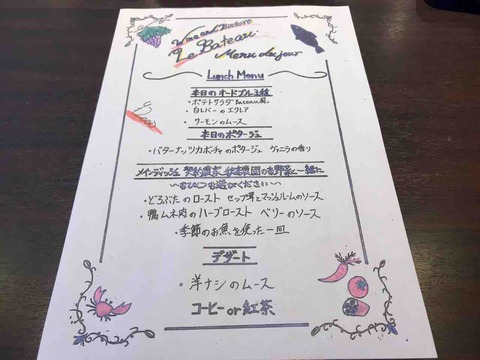 Wine and Bistoro
Le Bateau
Menu du jour
Lunch Menu
本日のオードブル3種
・ポテトサラダ 風
・白レバーのエクレア
・サーモンのムース
本日のポタージュ
・バターナッツカボチャのポタージュ ヴァニラの香り
メインディッシュ 契約農家 農園のお野菜と一緒に
〜おひとつお選びください〜
・どろぶたのロースト セップ茸とマッシュルームのソース
・鴨ムネ肉のハーブロースト ベリーのソース
・季節のお魚を使った一皿
デザート
・洋ナシのムース
コーヒー or 紅茶